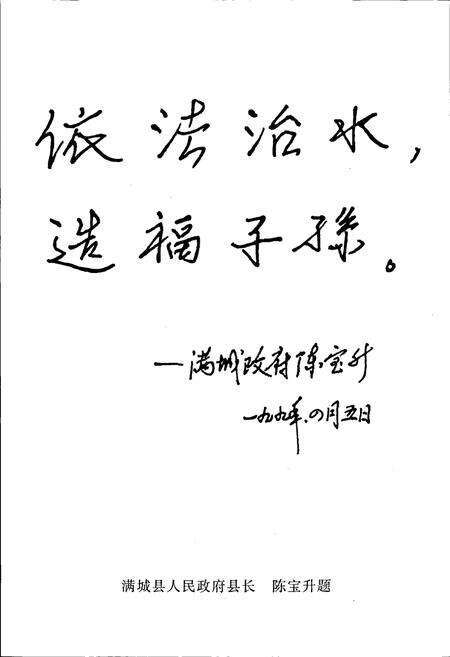 依法治水，
造福子孫。
—满城政府陈宝升
一九九〇年.四月五日
满城县人民政府县长 陈宝升题